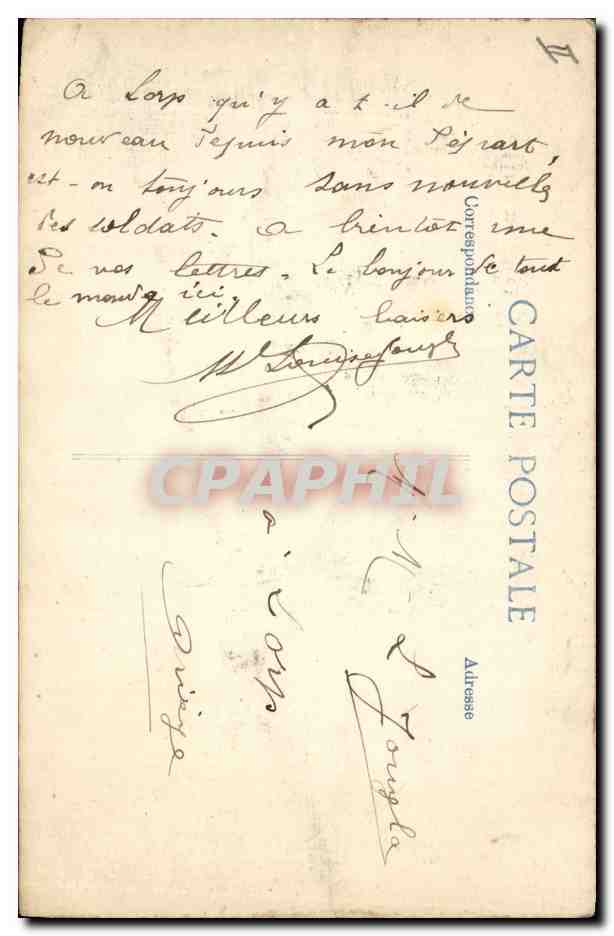 II
A Lorp qu'y a t-il de
nouveau depuis mon départ,
est-on toujours sans nouvelles
des soldats. A bientôt une
de vos lettres. Le bonjour de tout
le monde ici.
Meilleurs baisers
Louise
CARTE POSTALE
Correspondance
Adresse
CPAPHIL
L Jougla
à Lorp
Ariège